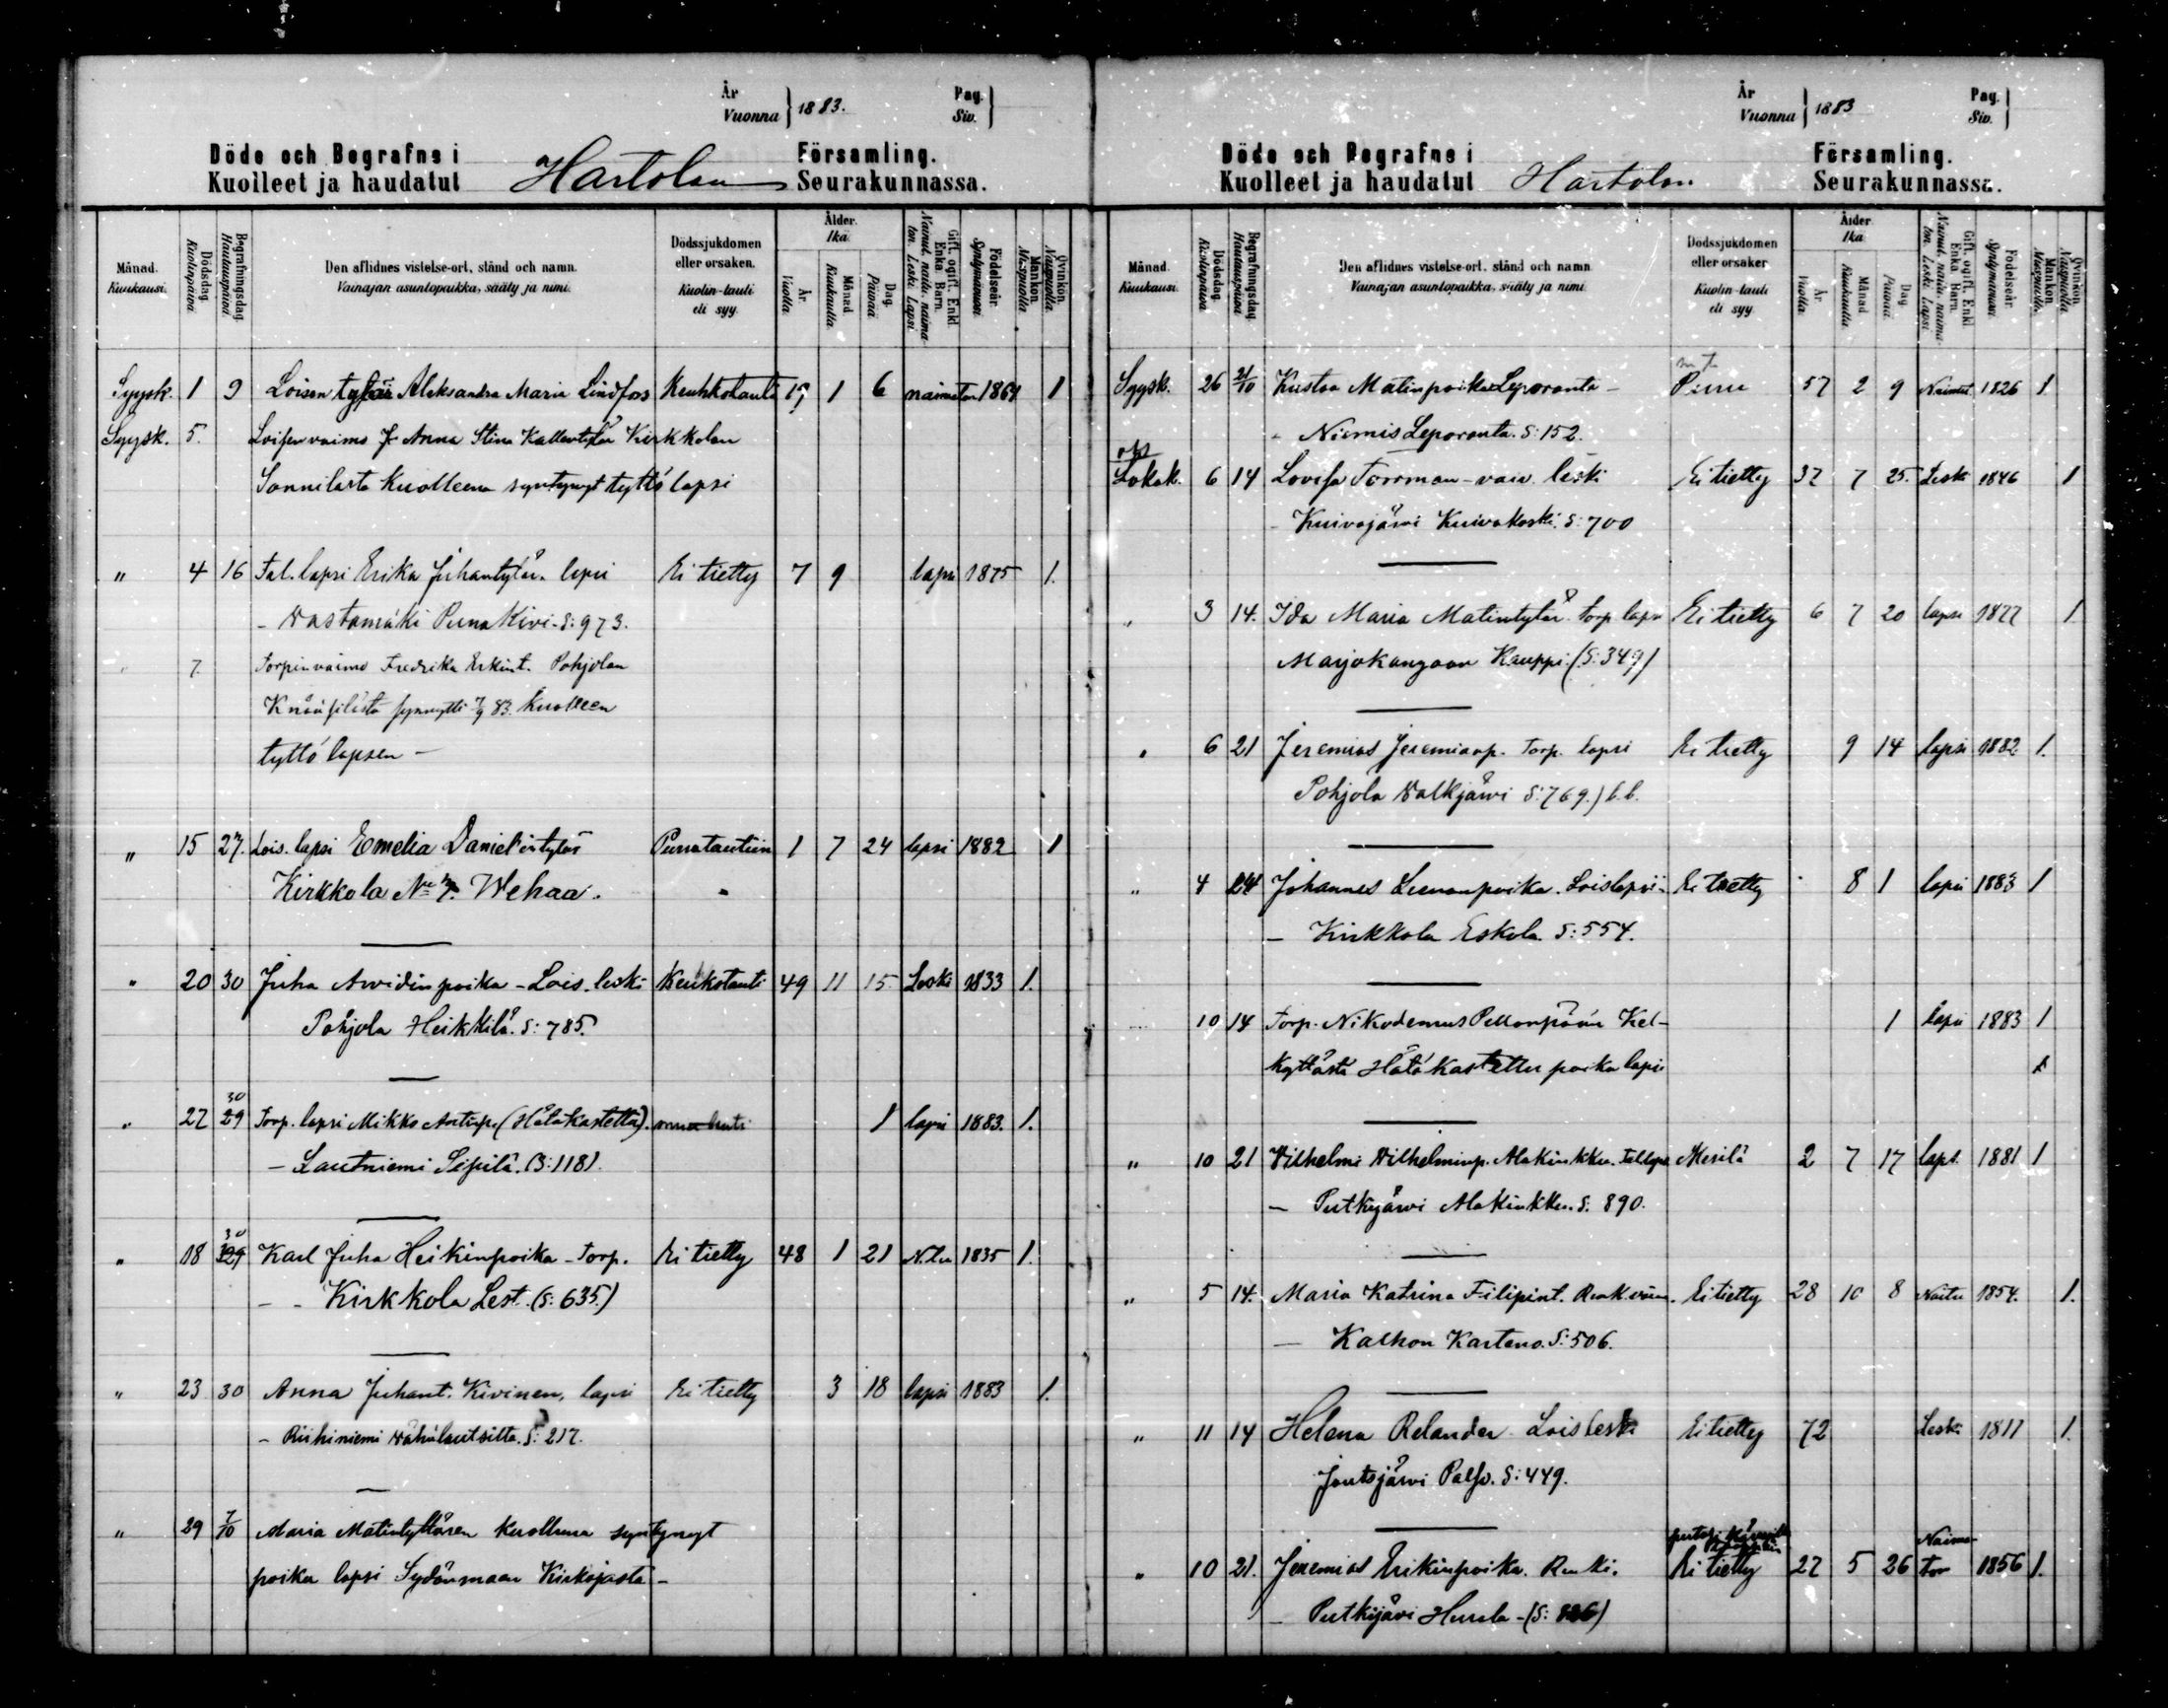 År
Vuonna } 1883.
Pag.
Siv. }
Döde och Begrafne i Församling.
Kuolleet ja haudatut Hartolan Seurakunnassa.
Månad. Kuukausi.
Dödsdag. Kuolinpäivä.
Begrafningsdag. Hautauspäivä.
Den aflidnes vistelse-ort, stånd och namn.
Vainajan asuntopaikka, sääty ja nimi.
Dödssjukdomen eller orsaken.
Kuolin-tauti eli syy.
Ålder. Ikä.
År. Vuotta.
Månad. Kuukautta.
Dag. Päivää.
Gift, ogift. Enkl. Enka. Barn.
Nainut, naitu, naimaton. Leski. Lapsi.
Födelseår. Syntymävuosi.
Mankön. Miespuolta.
Qvinkön. Naispuolta.
Syysk. 1 9 Loisen tytär Aleksandra Maria Lindfors Keuhkotauti 19 1 6 naimaton 1864 1
Syysk. 5. Loisen vaimo Anna Stina Kallentytär Kirkkolan
Sonnilasta Kuolleena syntynyt tyttö lapsi
" 4 16 Tal. lapsi Erika Juhantytär. lapsi Ei tietty 7 9 lapsi 1875 1.
- Vastamäki Puna Kivi. S: 973.
" 7. Torpin vaimo Fredrika Erkint. Pohjolan
synnytti 7/9 83. Kuolleen
tyttö lapsen -
" 15 27. Lois. lapsi Emelia Danielintytär Punatautiin 1 7 24 lapsi 1882 1
Kirkkola No 7. Wehaa.
" 20 30 Juha Arvidinpoika - Lois. leski Keuhkotauti 49 11 15 Leski 1833 1.
Pohjola Heikkilä. S: 785.
30
" 27 29 Torp. lapsi Mikko Antinp. (Hätäkastettu). 1 lapsi 1883. 1.
- Lautniemi Sipilä. (S: 118).
30
" 18 29 Karl Juha Heikinpoika - Torp. Ei tietty 48 1 21 1835 1.
- - Kirkkola Lest. (S: 635.)
" 23 30 Anna Juhant. Kivinen, lapsi Ei tietty 3 18 lapsi 1883 1.
- Riihiniemi S: 217.
" 29 7/10 Maria Matintyttären kuolleena syntynyt
poika lapsi Sydänmaan Kirkojasta -
År
Vuonna } 1883
Pag.
Siv. }
Döde och Begrafne i Församling.
Kuolleet ja haudatut Hartolan Seurakunnassa.
Månad. Kuukausi.
Dödsdag. Kuolinpäivä.
Begrafningsdag. Hautauspäivä.
Den aflidnes vistelse-ort, stånd och namn.
Vainajan asuntopaikka, sääty ja nimi.
Dödssjukdomen eller orsaker.
Kuolin-tauti eli syy.
Ålder. Ikä.
År. Vuotta.
Månad. Kuukautta.
Dag. Päivää.
Gift, ogift. Enkl. Enka. Barn.
Nainut, naitu, naimaton. Leski. Lapsi.
Födelseår. Syntymävuosi.
Mankön. Miespuolta.
Qvinkön. Naispuolta.
Syysk. 26 21/10 Kustaa Matinpoika Leporanta - 57 2 9 Nainut 1826 1.
- Niemis Leporanta. S: 152.
Lokak. 6 14 Lovisa Forrman - vaiv. leski Ei tietty 37 7 25. Leski 1846 1
- Kuivajärvi Kuivakoski. S: 700
" 3 14. Ida Maria Matintytär. Torp. lapsi Ei tietty 6 7 20 lapsi 1877 1.
Marjokangaan Kauppi. (S: 349)
" 6 21 Jeremias Jeremiaap. Torp. lapsi Ei tietty 9 14 lapsi 1882 1.
Pohjola Valkjärvi S: 769.) b.b.
" 4 24 Johannes Leenanpoika. Lois lapsi - Ei tietty 8 1 lapsi 1883 1
- Kirkkola Eskola. S: 554.
10 14 Torp. Nikodemus Kel-
kyttästä Hätä Kastettu poika lapsi
1 lapsi 1883 1
" 10 21 Vilhelmi Vilhelminp. Alakinkku. Tal lapsi 2 7 17 laps. 1881 1
- Putkijärvi Alakinkku. S: 890.
" 5 14. Maria Katrina Filipint. Renk. vaim. Ei tietty 28 10 8 Naitu 1854. 1.
- Kalhon Karteno. S: 506.
" 11 14 Helena Relander Lois leski Ei tietty 72 Leski 1811 1.
Joutsjärvi Palso. S: 449.
" 10 21. Jeremias Erikinpoika. Renki. Ei tietty 27 5 26 Naimaton 1856 1.
- Putkijärvi